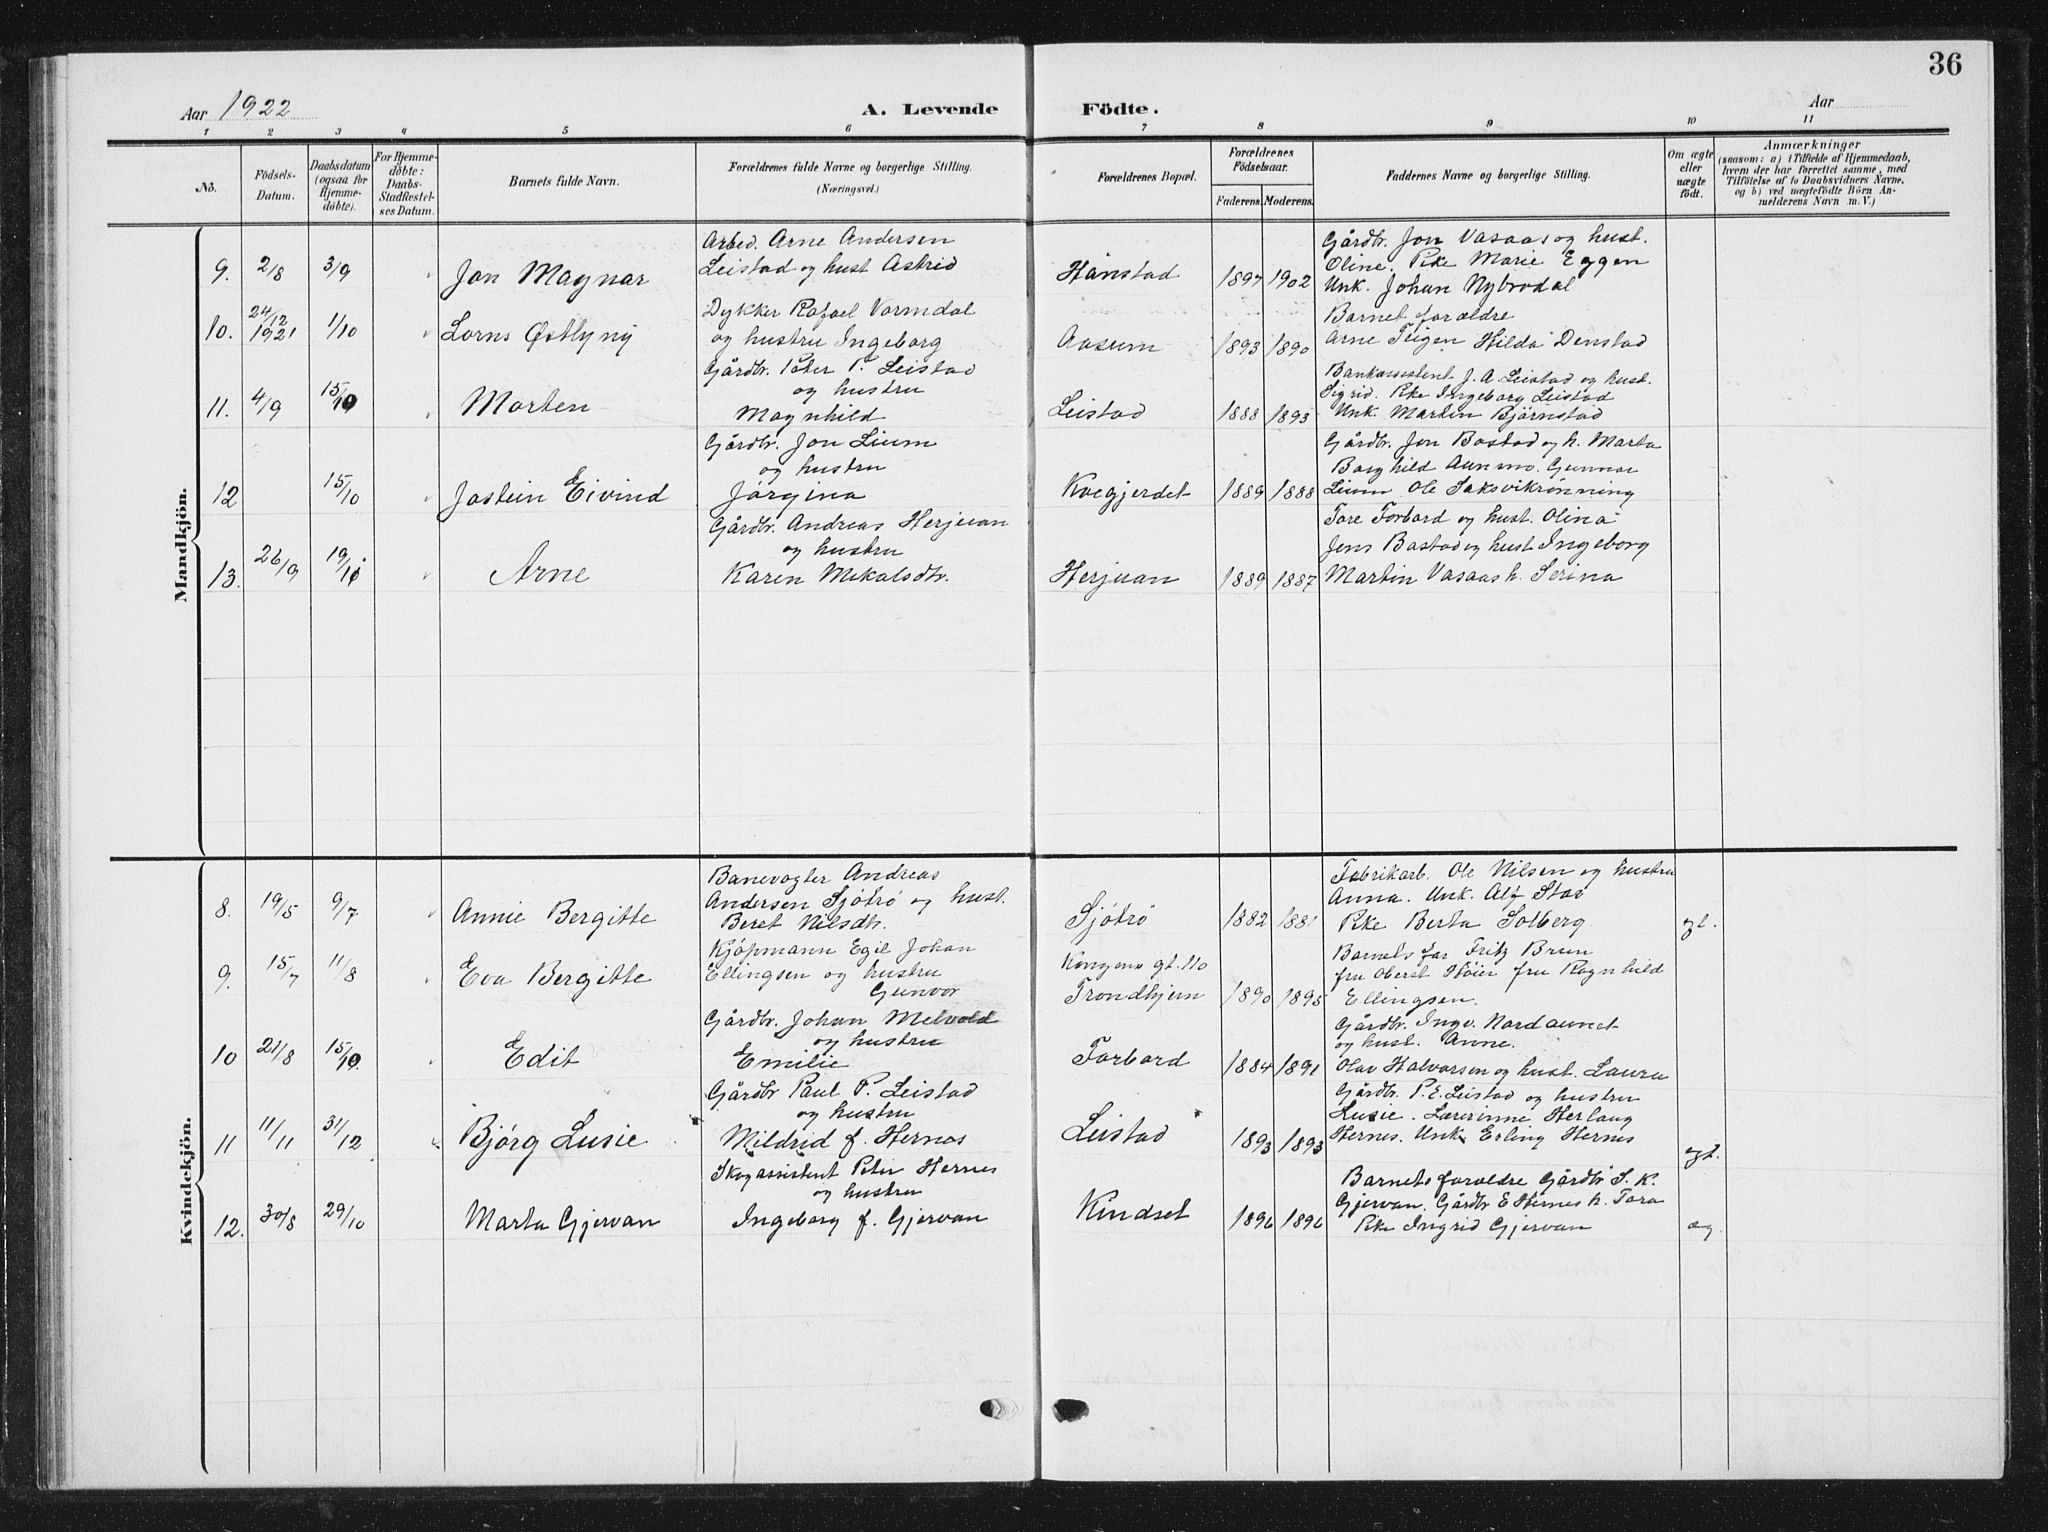 36
Aar 1922
A. Levende Födte.
Aar
1 2 3 4 5 6 7 8 9 10 11
No.
Födsels-Datum.
Daabsdatum (ogsaa for Hjemme-döbte).
For Hjemme-döbte: Daabs-Stadfæstel-ses Datum.
Barnets fulde Navn.
Forældrenes fulde Navne og borgerlige Stilling. (Næringsvei.)
Forældrenes Bopæl.
Forældrenes Födselsaar.
Faderens. Moderens.
Faddernes Navne og borgerlige Stilling.
Om ægte eller uægte födt.
Anmærkninger
(saasom: a) i Tilfælde af Hjemmedaab, hvem der har forrettet samme, med Tilföielse af to Daabsvidners Navne, og b) ved uægtefödte Börn An-melderens Navn m. V.)
Mandkjön.
Arbed. Arne Andersen
Gårdbr. Jon Vasaas og hust.
9. 2/8 3/9 Jon Magnar Leistad og hust Astrid Hånstad 1897 1902 Oline. Pike Marie Eggen
Unk. Johan Nybrodal
24/12
Dykker Rafael Vormdal
Barnet forældre
10. 1921 1/10 Lorns Østlyng og hustru Ingeborg Aasum 1893 1890 Arne Teigen Hilda Denstad
Gårdbr. Peter P. Leistad
Bankassistent J. A. Leistad og hust.
og hustru
Sigrid. Pike Ingeborg Leistad
11. 4/9 15/10 Morten Magnhild Leistad 1888 1893 Unk. Martin Bjørnstad
Gårdbr. Jon Lium
Gårdbr. Jon Bastad og h. Marta
og hustru
Borghild Aunmo. Gunnar
12 15/10 Jostein Eivind Jørgina Kvegjerdet 1889 1888 Lium Ole Saksvikrønning
Gårdbr. Andreas Herjuan
Tore Forbord og hust. Olina
og hustru
Jens Bastad og hust Ingeborg
13. 26/9 19/11 Arne Karen Mikalsdtr. Herjuan 1889 1887 Martin Vasaas h. Serina
Kvindekjön.
Banevogter Andreas
Fabrikarb. Ole Nilsen og hustru
Andersen Sjøtrø og hust.
Anna. Unk. Alf Stav
8. 19/5 9/7 Annie Bergitte Beret Nilsdtr. Sjötrö 1882 1881 Pike Berta Solberg gt.
Kjøpmann Egil Johan
Barnets far Fritz Brun
9. 15/7 11/8 Eva Bergitte Ellingsen og hustru Kongens gt. 110 fru Oberst Høier fru Ragnhild
Gunvor Trondhjem 1890 1895 Ellingsen.
Gårdbr. Johan Melvold
Gårdbr. Ingv. Nordaunet
og hustru
og hust. Anne.
10 21/8 15/10. Edit Emilie Forbord 1884 1891 Olav Halvorsen og hust. Laura
Gårdbr Paul P. Leistad
Gårdbr. P. E. Leistad og hustru
og hustru
Lusie. Lærerinne Herlaug
11 11/11 31/12 Bjørg Lusie Mildrid f. Hernes Leistad 1893 1893 Hernes. Unk Erling Hernes gt.
Skogassistent Peter Hernes
Barnets forældre Gårdbr S. K.
og hustru
Gjervan. Gårdbr E Hernes h. Tora
12. 30/8 29/10 Marta Gjervan Ingeborg f. Gjervan Kindset 1896 1896 Pike Ingrid Gjervan æg.